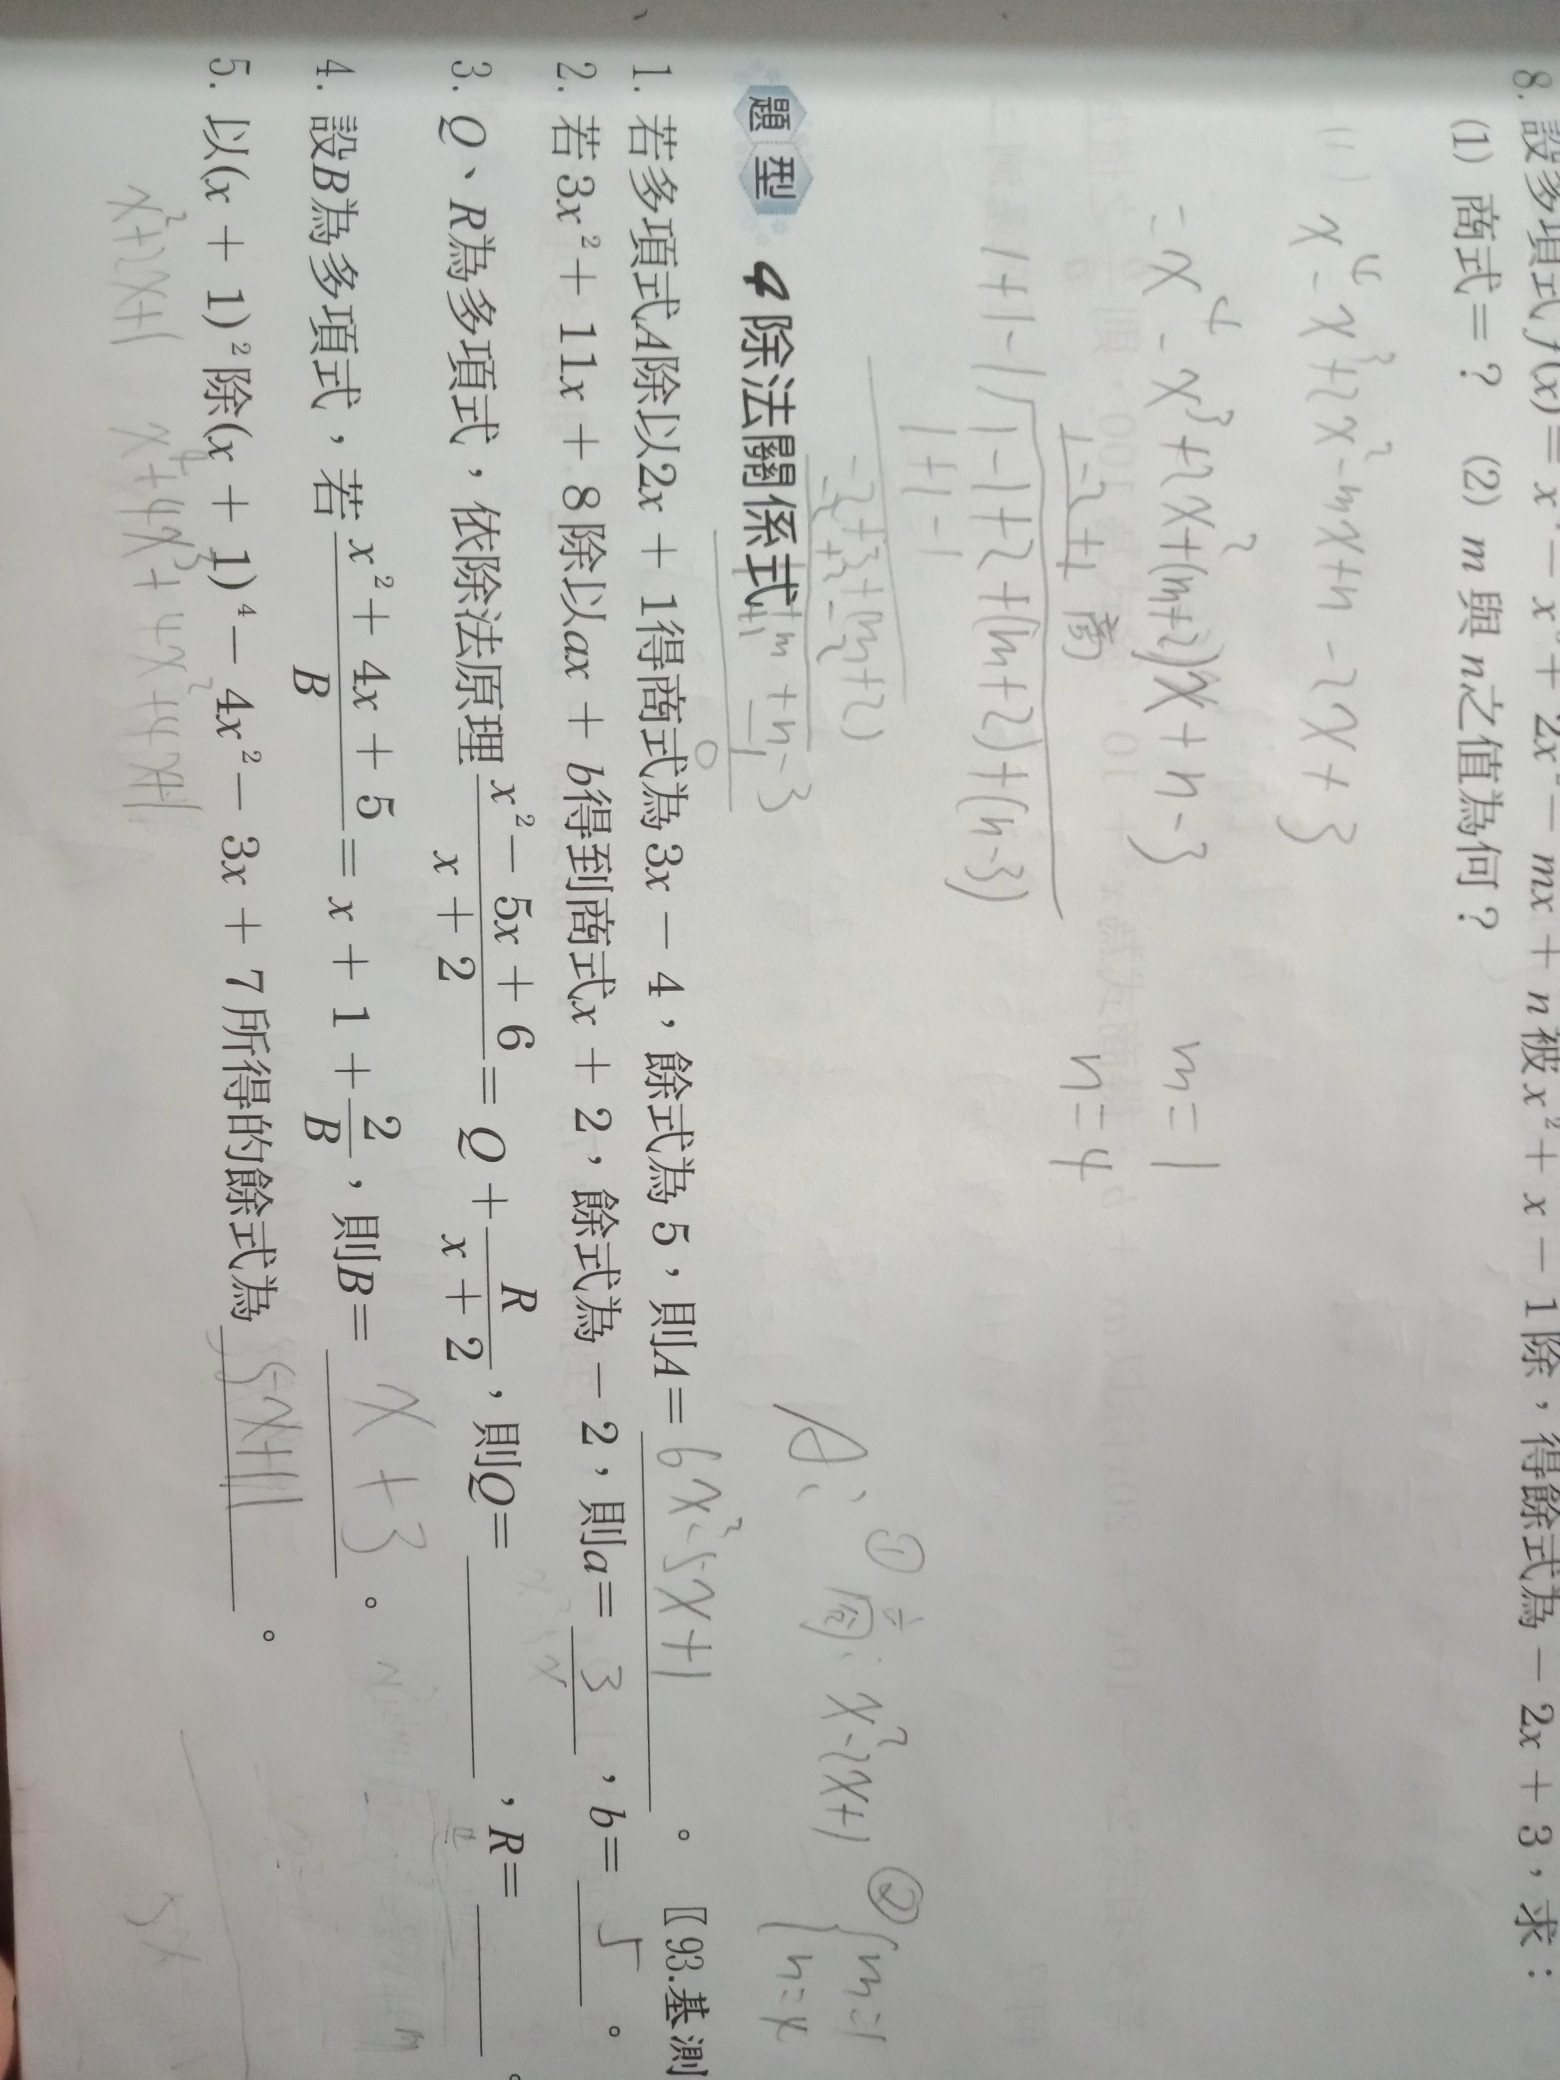 8. 設多項式f(x) = x⁴ - x³ + 2x² - mx + n被x² + x - 1除，得餘式為 - 2x + 3，求：
(1) 商式 = ？ (2) m與n之值為何？
(1) x⁴-x³+2x²-mx+n -2x+3
= x⁴-x³+2x²+(m+2)x+n-3
m=1
n=4
1-2+1 商
1+1-1 1-1+2+(m+2)+(n-3)
1+1-1
-2+3+(m+2)
A: ① 商: x²-2x+1 ② m=1
n=4
題型 4 除法關係式
1. 若多項式A除以2x + 1得商式為3x - 4，餘式為5，則A= 6x²-5x+1 。〖93.基測
2. 若3x² + 11x + 8除以ax + b得到商式x + 2，餘式為 - 2，則a= 3 ，b= 5 。
3. Q、R為多項式，依除法原理 (x² - 5x + 6)/(x + 2) = Q + R/(x + 2)，則Q= ，R= 。
4. 設B為多項式，若 (x² + 4x + 5)/B = x + 1 + 2/B，則B= x+3 。
5. 以(x + 1)²除(x + 1)⁴ - 4x² - 3x + 7所得的餘式為 5x+11 。
x²+2x+1 x⁴+4x³+4x²+4x+1